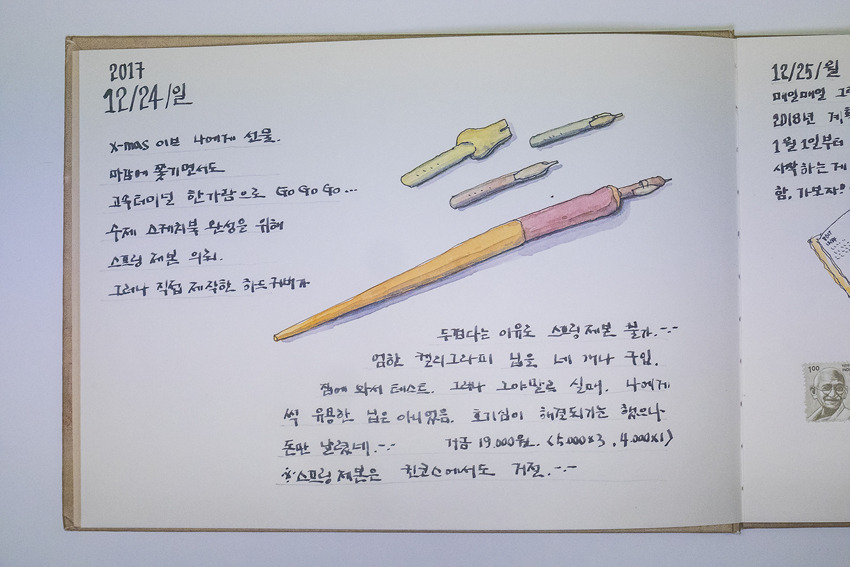 2017
12/24/일
x-mas 이브 나에게 선물.
마감에 쫓기면서도
고속터미널 한가람으로 GO GO GO...
수제 스케치북 완성을 위해
스프링 제본 의뢰.
그러나 직접 제작한 하드커버가
두껍다는 이유로 스프링 제본 불가.-.-
엄한 캘리그라피 닙을 네 개나 구입.
집에 와서 테스트. 그러나 그야말로 실패. 나에게
썩 유용한 닙은 아니었음. 호기심이 해결되기는 했으나
돈만 날렸네.-.- 거금 19,000원. (5,000x3, 4,000x1)
※스프링 제본은 킨코스에서도 거절.-.-
12/25/월
매일매일 그
2018년 계획
1월 1일부터
시작하는 게
함. 가보자!
100